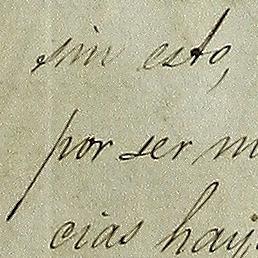 sin esto,
por ser m
cias hay